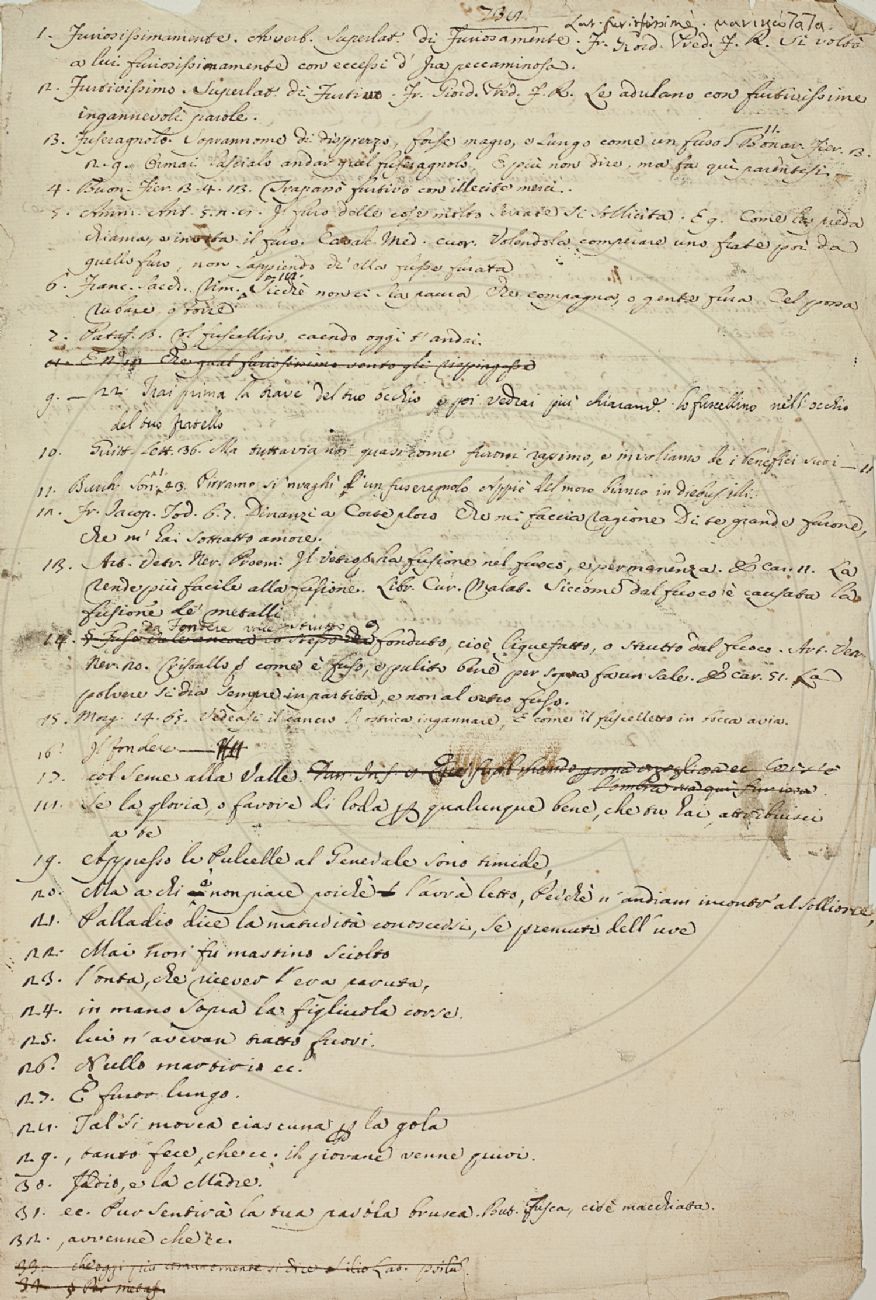 734.
Lat. furiosissimè. μανικώτατα.
1. Furiosissimamente. Avverb. Superlat. di Furiosamente. Fr. Giord. Pred. F. R. Si voltò
a lui furiosissimamente con eccessi d' Ira peccaminosa.
2. Furtivissimo. Superlat. di Furtivo. Fr. Giord. Pred. F. R. Le adulano con furtivissime
ingannevoli parole.
3. Fuseragnolo. Soprannome di disprezzo, forse magro, e lungo come un fuso. Buonar. Fier. 3.
2. 9. Ormai lascialo andar quel fuseragnolo, E più non dire, ma fa quì parentesi.
4. Buon. Fier. 3. 4. 13. Trapanò furtivo con illecite merci.
5. Amm. Ant. 5. Il furo delle cose molto serrate si sollicita. E 9. Come la preda
chiama, e invita il furo. Caval. Med. cuor. Volendola comperare uno frate poi da
quello furo, non sappiendo ch' ella fusse furata
6. Franc. Sacch. rim. Sicchè non ci sia paura Che compagna, o gente fura Cel possa
rubare, o torre
7. Pataf. 3. Col fuscellin, caendo oggi t' andai.
9. — 22. Trai prima la trave del tuo occhio e poi vedrai più chiaram. lo fuscellino nell' occhio
del tuo fratello
10. Guitt. Lett. 36. Ma tuttavia noi quasi come furoni rapimo, e involiamo de i benefici suoi —
11. Burch. Son. 23. Pirramo, si 'nvaghì d' un fuseragnolo Appiè del moro bianco in diebus illi.
12. Fr. Jacop. Tod. 6. 7. Dinanzi a Corte ploro Che mi faccia ragione Di te grande furone,
Che m' hai sottratto amore.
13. Art. Vetr. Ner. Proem. Il vetro ha fusione nel fuoco, e permanenza. E car. 11. La
rende più facile alla fusione. Libr. Cur. Malat. Siccome dal fuoco è causata la
fusione de' metalli
14. da Fondere fonduto, cioè liquefatto, o strutto dal fuoco. Art. Vetr.
Ner. 20. Cristallo come è fuso, e pulito bene per sopra fa un sale. E car. 51. La
polvere si dia sempre in partita, e non al vetro fuso.
15. Morg. 14. 65. ingannare, E come il fuscelletto in bocca avia.
16. Il fondere —
17. col seme alla valle.
18. Se la gloria, o favore di loda p qualunque bene, che tu hai, attribuisci
a te
19. Appresso le Pulcelle al Generale sono timide,
20. Ma a chi non piace poichè l' avrà letto, Perchè n' andiam incontr' al sollione,
21. Palladio dice la maturità conoscersi, se premuti dell' uve
22. Mai non fu mastino sciolto
23. l' onta, che ricever l' era paruta,
24. in mano sopra la figliuola corse.
25. lui n' avevan tratto fuori.
26. Nullo martirio ec.
27. È furor lungo.
28. Tal si movea ciascuna p la gola
29. , tanto fece, che ec. il giovane venne quivi.
30. Iddio, e la Madre.
31. ec. Pur sentirà la tua parola brusca. But. Fusca, cioè macchiata.
32. , avvenne che ec.
33. che oggi più comunemente si dice
34. Per metaf.